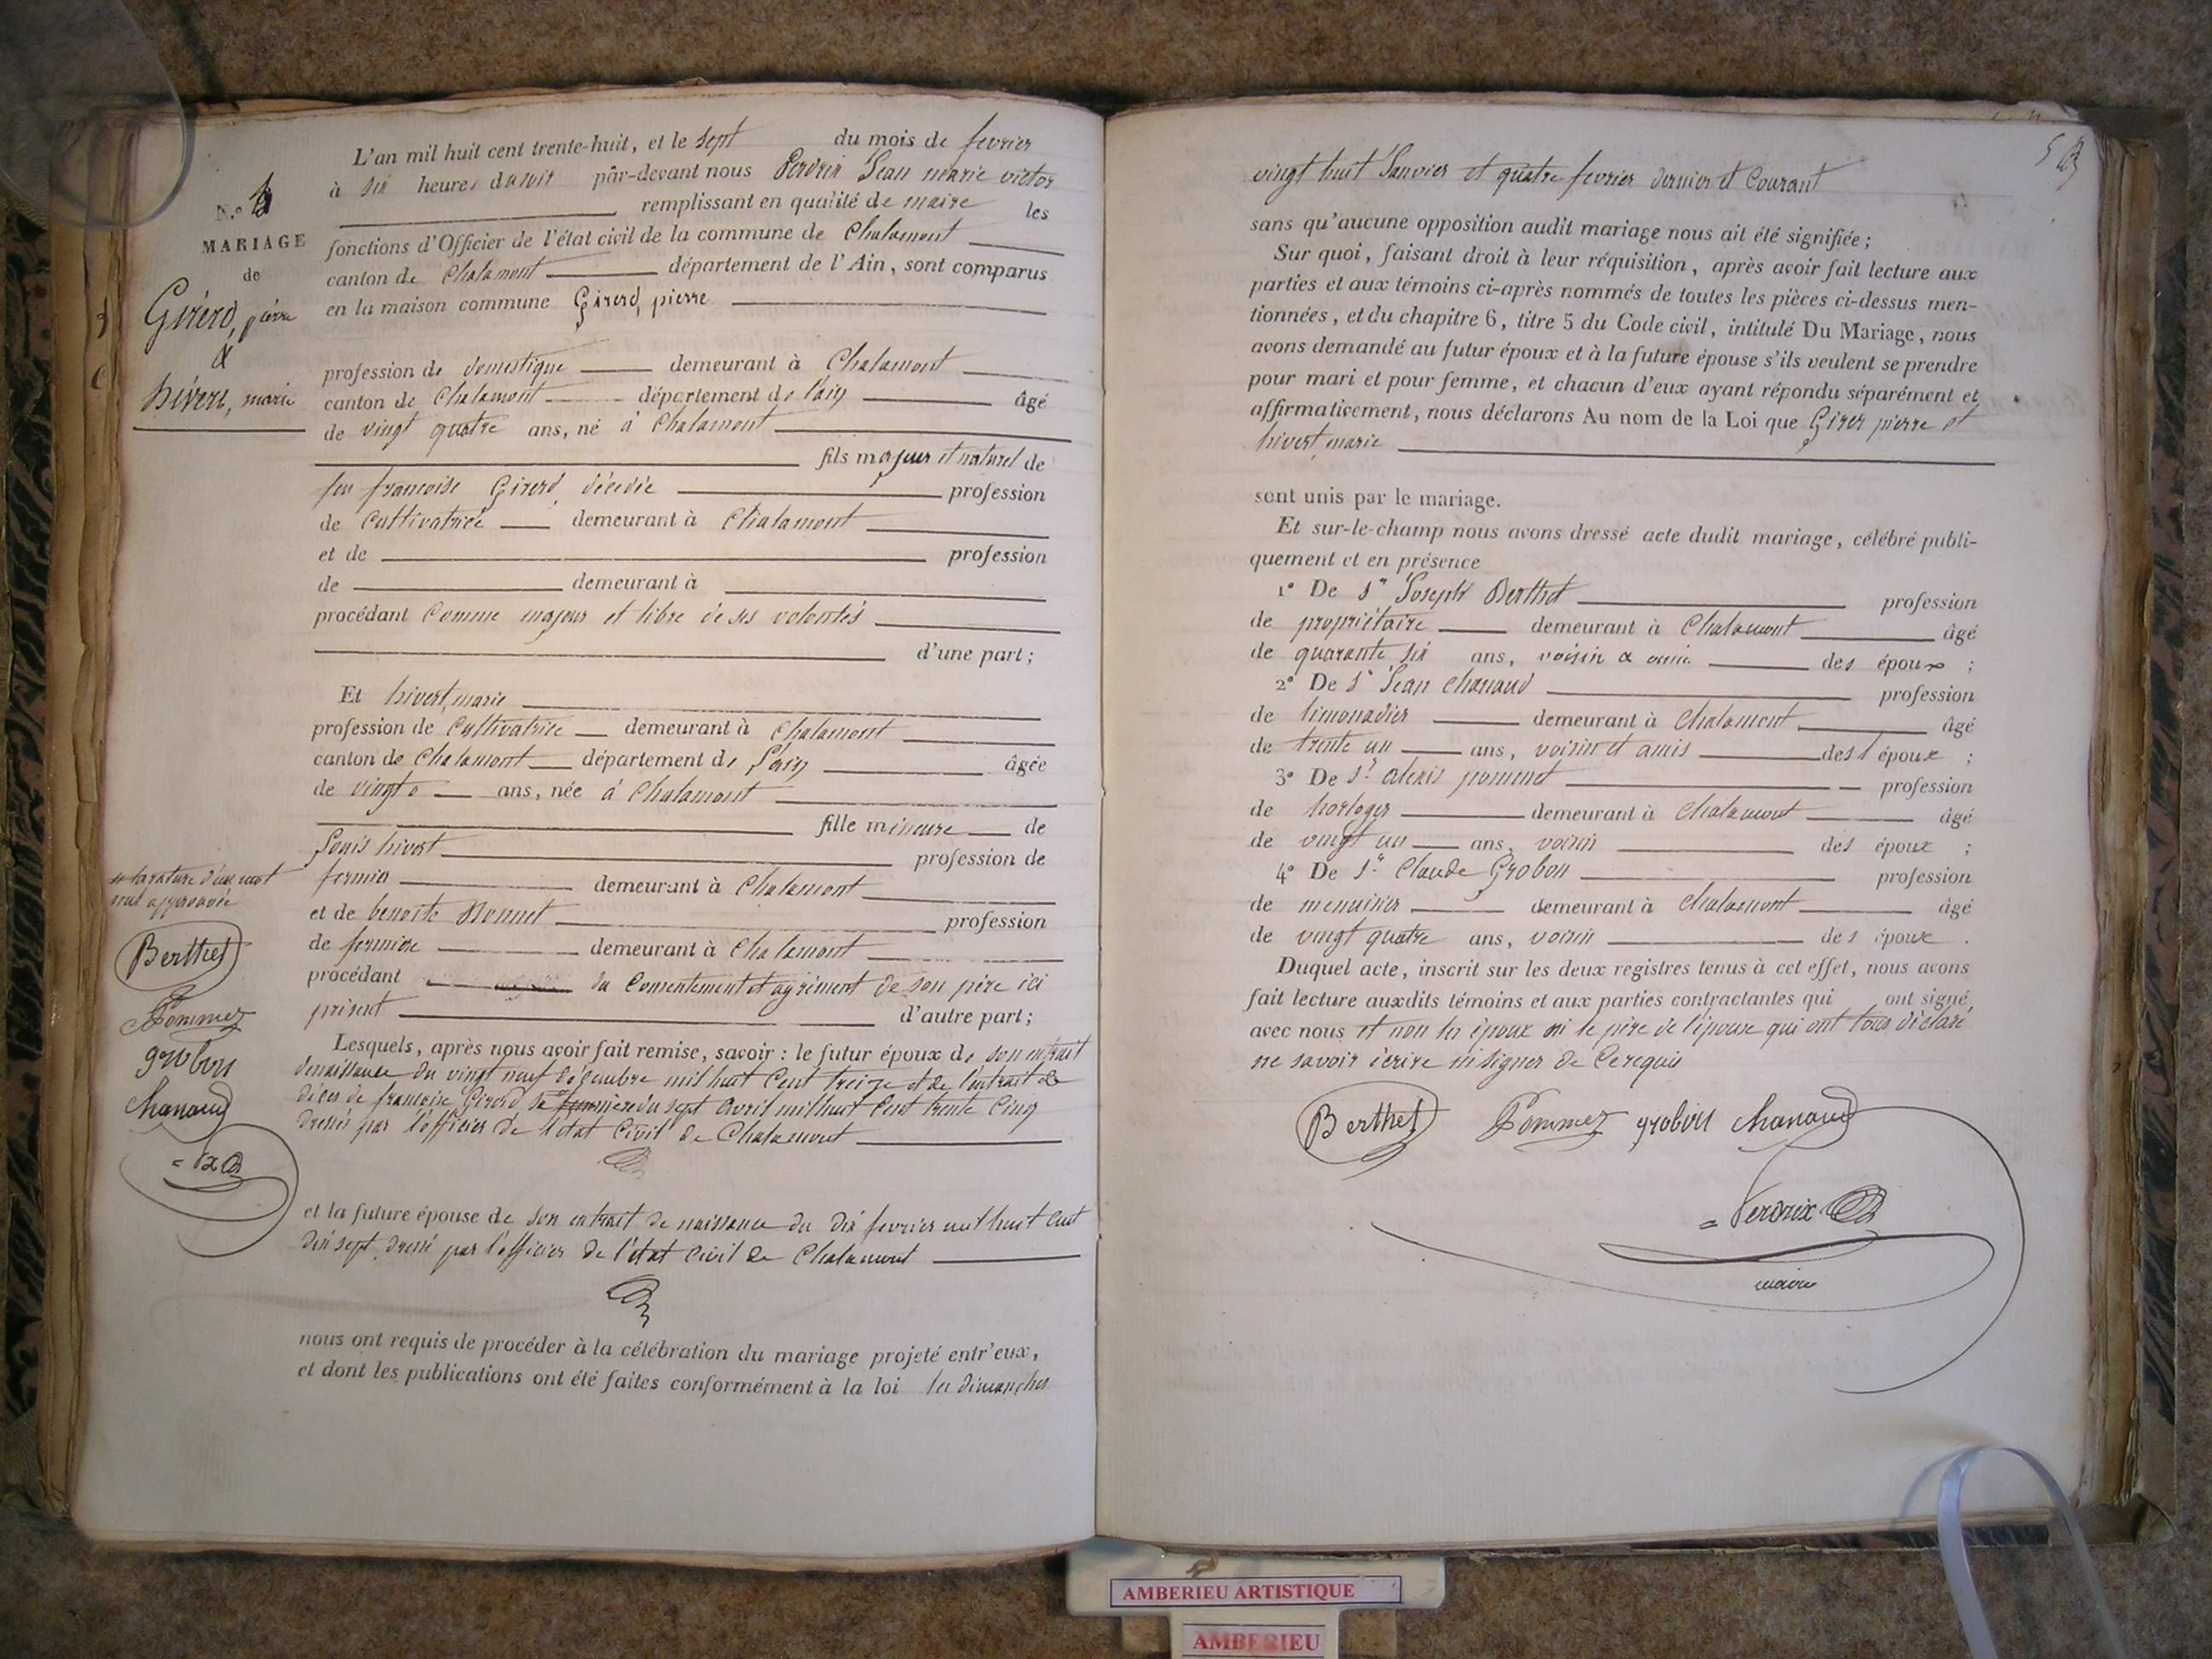 L'an mil huit cent trente-huit, et le sept du mois de fevrier
à six heures du soir par-devant nous Perdrix Jean marie victor
remplissant en qualité de maire les
fonctions d'Officier de l'état civil de la commune de Chalamont
canton de Chalamont département de l'Ain, sont comparus
en la maison commune Girerd, pierre
N.º
MARIAGE
de
Girerd, pierre
&
hivert, marie
profession de domestique demeurant à Chalamont
canton de Chalamont département de l'ain âgé
de vingt quatre ans, né à Chalamont
fils majeur et naturel de
feu francoise Girerd, décédée profession
de Cultivatrice demeurant à Chalamont
et de profession
de demeurant à
procédant Comme majeur et libre de ses volontés
d'une part;
Et hivert, marie
profession de Cultivatrice demeurant à Chalamont
canton de Chalamont département de l'ain âgée
de vingt ans, née à Chalamont
fille mineure de
Louis hivert profession de
fermier demeurant à Chalamont
et de benoite Bonnet profession
de fermiere demeurant à Chalamont
procédant du Consentement et agrément de son père ici
présent d'autre part;
la rature d'un mot
nul approuvée
Berthet
Pommez
grobon
Chanaud
Lesquels, après nous avoir fait remise, savoir: le futur époux de son extrait
de naissance du vingt neuf décembre mil huit Cent treize et de l'extrait de
déces de francoise Girerd, sa du sept avril mil huit Cent trente Cinq
dressés par l'officier de l'état Civil de Chalamont
et la future épouse de son extrait de naissance du dix fevrier mil huit cent
dix sept, dressé par l'officier de l'état civil de Chalamont
nous ont requis de procéder à la célébration du mariage projeté entr'eux,
et dont les publications ont été faites conformément à la loi les dimanches
vingt huit Janvier et quatre fevrier dernier et Courant
sans qu'aucune opposition audit mariage nous ait été signifiée;
Sur quoi, faisant droit à leur réquisition, après avoir fait lecture aux
parties et aux témoins ci-après nommés de toutes les pièces ci-dessus men-
tionnées, et du chapitre 6, titre 5 du Code civil, intitulé Du Mariage, nous
avons demandé au futur époux et à la future épouse s'ils veulent se prendre
pour mari et pour femme, et chacun d'eux ayant répondu séparément et
affirmativement, nous déclarons Au nom de la Loi que Girer pierre et
hivert, marie
sont unis par le mariage.
Et sur-le-champ nous avons dressé acte dudit mariage, célébré publi-
quement et en présence
1º De Sr Joseph Berthet profession
de propriétaire demeurant à Chalamont âgé
de quarante six ans, voisin & amie des époux;
2º De Sr Jean Chanaud profession
de limonadier demeurant à Chalamont âgé
de trente un ans, voisin et amis des époux;
3º De Sr alexis pommet profession
de horloger demeurant à Chalamont âgé
de vingt un ans, voisin des époux;
4º De Sr Claude Grobon profession
de menuisier demeurant à Chalamont âgé
de vingt quatre ans, voisin des époux.
Duquel acte, inscrit sur les deux registres tenus à cet effet, nous avons
fait lecture auxdits témoins et aux parties contractantes qui ont signé
avec nous et non les époux ni le père de l'épouse qui ont tous déclaré
ne savoir écrire ni signer de Ce requis
Berthet Pommez grobon Chanaud
Perdrix
maire
AMBERIEU ARTISTIQUE
AMBERIEU